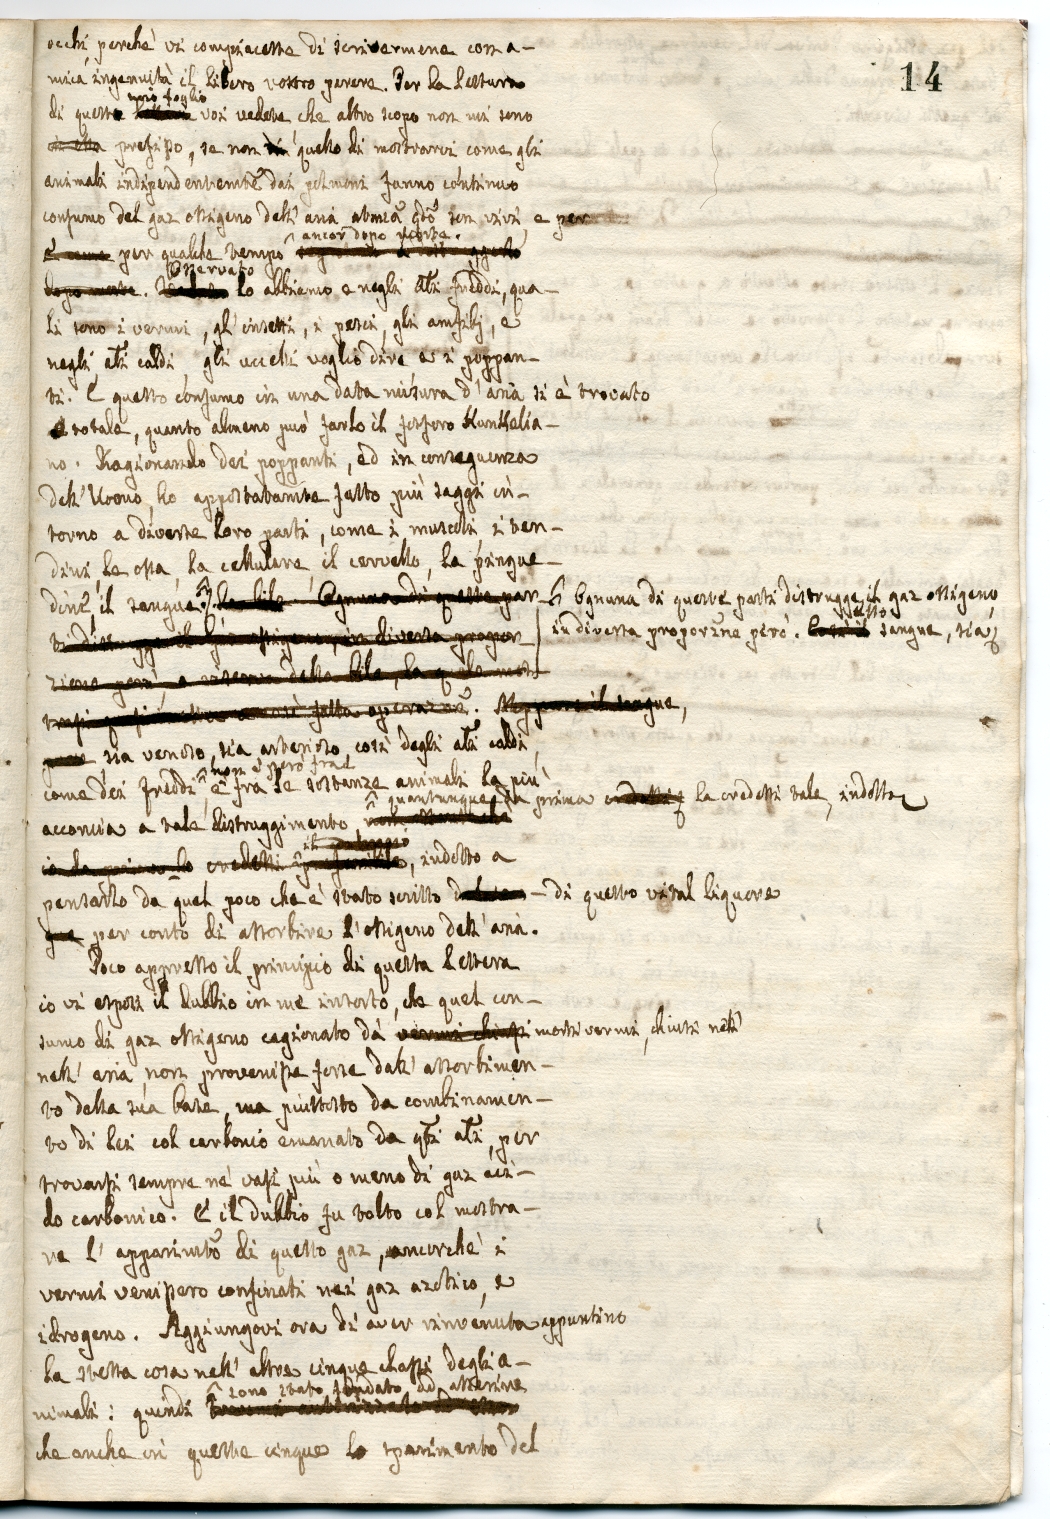 14
occhi, perchè vi compiaceste di scrivermene con a-
mica ingenuità il libero vostro parere. Per la lettura
mio foglio
di questo voi vedete che altro scopo non mi sono
prefisso, se non quello di mostrarvi come gli
animali indipendentemte dai polmoni fanno continuo
consumo del gaz ossigeno dell' aria atmca qdo son vivi, e
ancor dopo morte.
per qualche tempo
Osservato
dopo morte. lo abbiamo e negli ali freddi, qua-
li sono i vermi, gl' insetti, i pesci, gli amfibj, e
negli ali caldi, gli uccelli voglio dire, e i poppan-
ti. E questo consumo in una data misura d' aria si è trovato
totale, quanto almeno può farlo il fosforo Kunkelia-
no. Ragionando dei poppanti, ed in conseguenza
dell' Uomo, ho appostatamte fatto più saggi in-
torno a diverse loro parti, come i muscoli, i ten-
dini, le ossa, la cellulare, il cervello, la pingue-
dine, il sangue. la bile. Ognuna di queste par- Ognuna di queste parti distrugge il gaz ossigeno,
in diversa proporzne però. sangue, sia
ziene però, a riserva della bile, la quale mos-
Neppure il sangue,
sia venoso, sia arterioso, così degli ali caldi,
non è però fra
come dei freddi, è fra le sostanze animali la più
quantunque da prima la credetti tale, indotto
acconcia a tale distruggimento
io da prima lo credetti, indotto a
pensarlo da quel poco che è stato scritto - di questo vital liquore
per conto di assorbire l' ossigeno dell' aria.
Poco appresso il principio di questa lettera
io vi esposi il dubbio in me insorto, che quel con-
sumo di gaz ossigeno cagionato da vermi chiusi morti vermi, chiusi nell'
nell' aria, non provenisse forse dall' assorbimen-
to della sua base, ma piuttosto da combinamen-
to di lei col carbonio emanato da qti ali, per
trovarsi sempre ne' vasi più o meno di gaz aci-
do carbonico. E il dubbio fu tolto col mostra-
re l' apparimto di questo gaz, ancorchè i
vermi venissero confinati nei gaz azotico, e
idrogeno. Aggiungovi ora di aver rinvenuta appuntino
la stessa cosa nell' altre cinque classi degli a-
sono stato fondato ad asserire
nimali: quindi
che anche in queste cinque lo sparimento del